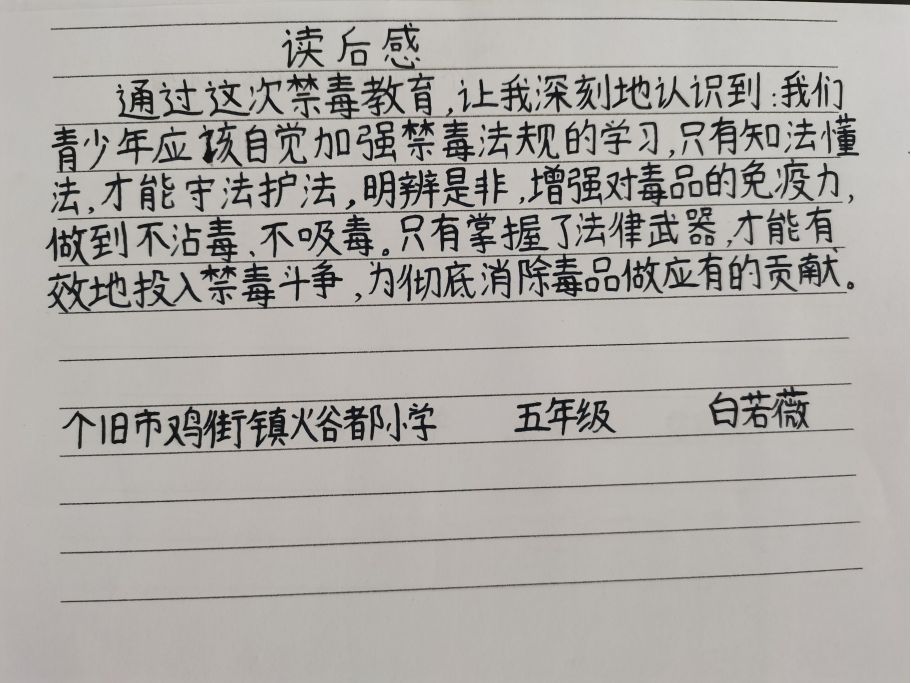 读后感
通过这次禁毒教育,让我深刻地认识到:我们
青少年应该自觉加强禁毒法规的学习,只有知法懂
法,才能守法护法,明辨是非,增强对毒品的免疫力,
做到不沾毒、不吸毒。只有掌握了法律武器,才能有
效地投入禁毒斗争,为彻底消除毒品做应有的贡献。
个旧市鸡街镇火谷都小学 五年级 白若薇